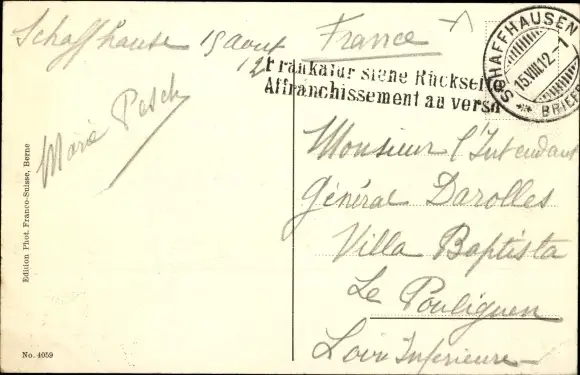 Schaffhouse 15 aout
12
France
Frankatur siehe Rückseite
Affranchissement au verso
SCHAFFHAUSEN
15.VIII.12.-1
BRIEF
Marie Pesch
Monsieur l'Intendant
Général Darolles
Villa Baptista
Le Pouliguen
Loire Inférieure
Edition Phot. Franco-Suisse, Berne
No. 4059